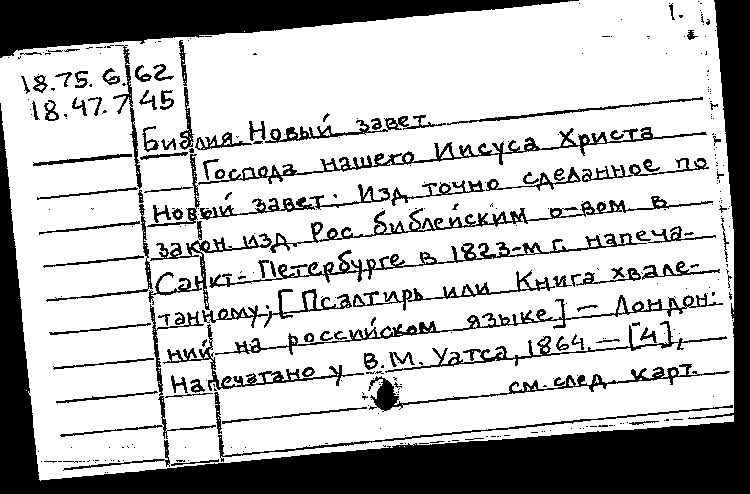 1.
18.75.6.62
18.47.7.45
Библия. Новый завет.
Господа нашего Иисуса Христа
Новый завет: Изд. точно сделанное по
закон. изд. Рос. библейским о-вом в
Санкт-Петербурге в 1823-м г. напеча-
танному; [Псалтирь или Книга хвале-
ний на российском языке] — Лондон:
Напечатано у В.М. Уатса, 1864. — [4],
см. след. карт.